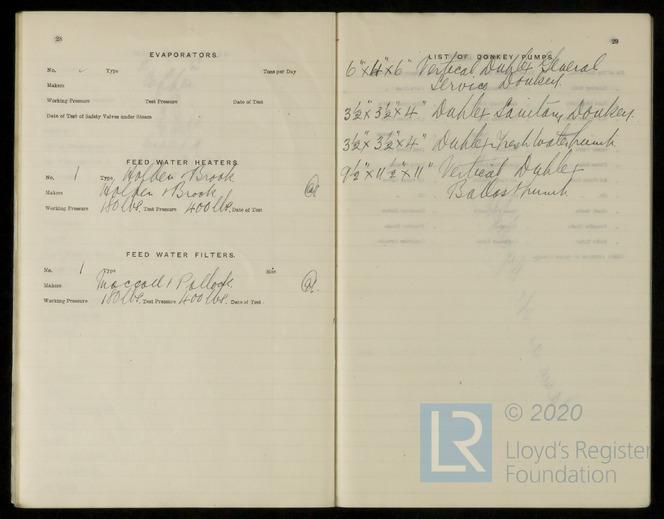 28
EVAPORATORS.
No. Type Tons per Day
Makers
Working Pressure Test Pressure Date of Test
Date of Test of Safety Valves under Steam
FEED WATER HEATERS.
No. 1 Type Holden & Brook
Makers Holden & Brook
Working Pressure 180 lbs. Test Pressure 400 lbs. Date of Test
FEED WATER FILTERS.
No. 1 Type Size
Makers Maccoll & Pollock
Working Pressure 180 lbs. Test Pressure 400 lbs. Date of Test
29
LIST OF DONKEY PUMPS.
6" x 4" x 6" Vertical Duplex General
Service Donkey.
3½" x 3½" x 4" Duplex Sanitary Donkey.
3½" x 3½" x 4" Duplex Fresh Water pump
9½" x 11½" x 11" Vertical Duplex
Ballast pump
LR
© 2020
Lloyd's Register
Foundation